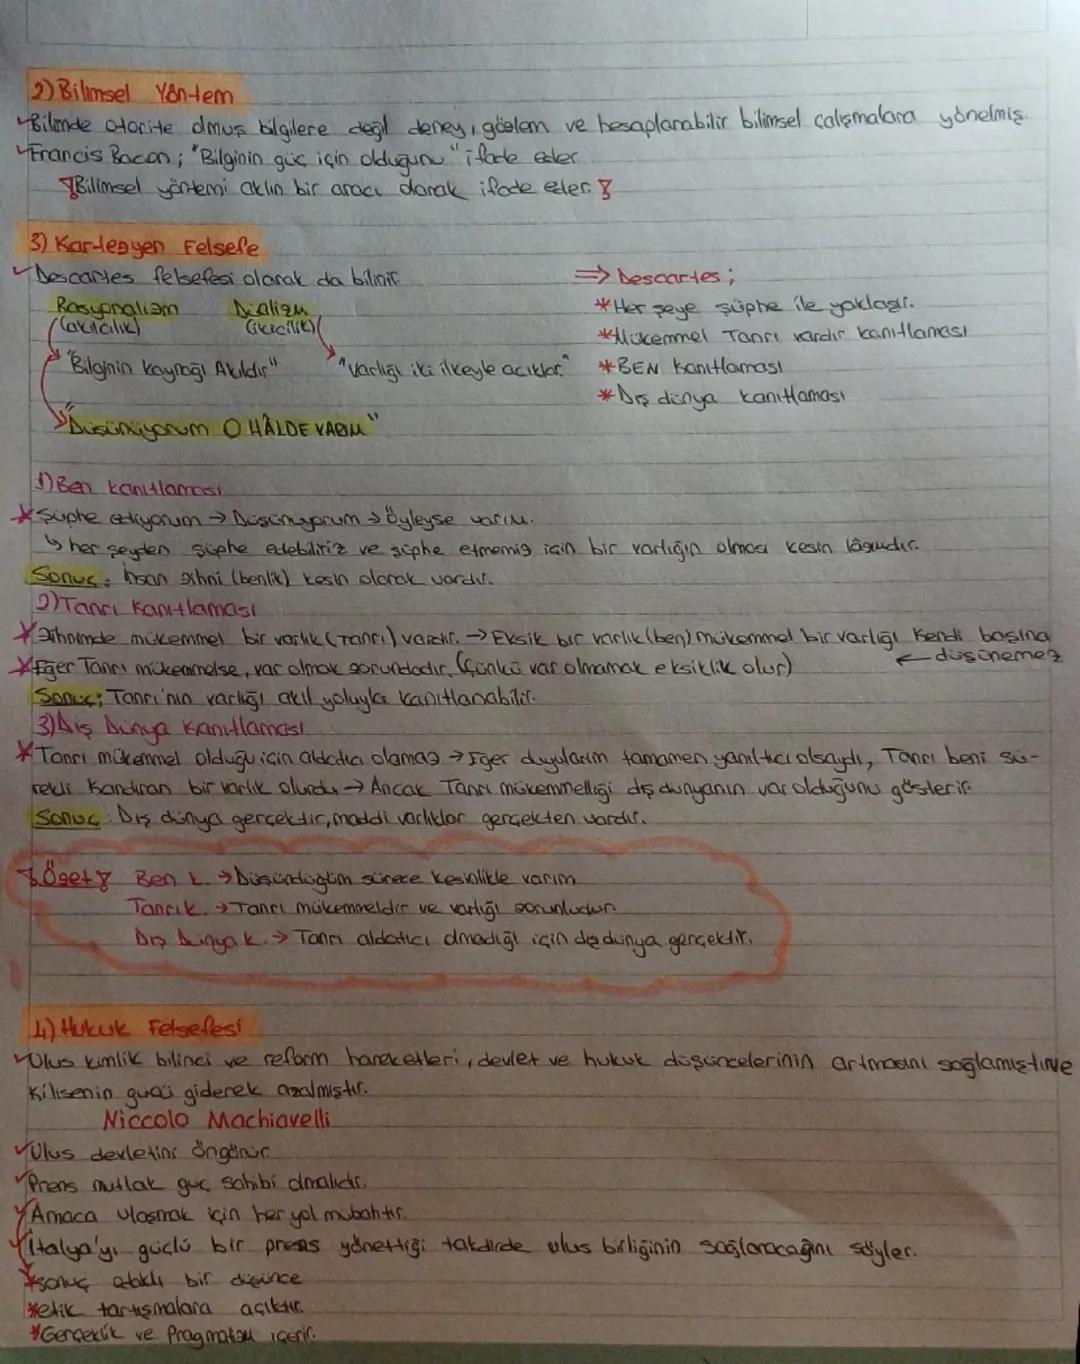 2) Bilimsel Yöntem
Bilimde otorite olmuş bilgilere değil deney, gözlem ve hesaplanabilir bilimsel çalışmalara yönelmiş.
Francis Bacon; "Bilginin güç için olduğunu" ifade eder.
Bilimsel yöntemi aklın bir aracı olarak ifade eder.
3) Kartezyen Felsefe
Descartes felsefesi olarak da bilinir.
Rasyonalizm (akılcılık)
Düalizm (ikicilik)
"Bilginin kaynağı Akıldır"
"Varlığı iki ilkeyle açıklar."
"Düşünüyorum O HÂLDE VARIM"
⇒ Descartes;
* Her şeye şüphe ile yaklaşır.
* Mükemmel Tanrı vardır kanıtlaması
* BEN Kanıtlaması
* Dış dünya kanıtlaması
1) Ben kanıtlaması
* Şüphe ediyorum → Düşünüyorum → Öyleyse varım.
↳ her şeyden şüphe edebiliriz ve şüphe etmemiz için bir varlığın olması kesin lâzımdır.
Sonuç: İnsan zihni (benlik) kesin olarak vardır.
2) Tanrı Kanıtlaması
* Zihnimde mükemmel bir varlık (Tanrı) vardır. → Eksik bir varlık (ben) mükemmel bir varlığı kendi başına
← düşünemez
* Eğer Tanrı mükemmelse, var olmak zorundadır. (Çünkü var olmamak eksiklik olur)
Sonuç; Tanrı'nın varlığı akıl yoluyla kanıtlanabilir.
3) Dış Dünya Kanıtlaması
* Tanrı mükemmel olduğu için aldatıcı olamaz → Eğer duyularım tamamen yanıltıcı olsaydı, Tanrı beni sü-
rekli kandıran bir varlık olurdu → Ancak Tanrı mükemmelliği dış dünyanın var olduğunu gösterir.
Sonuç: Dış dünya gerçektir, maddi varlıklar gerçekten vardır.
Özet Ben k. → Düşündüğüm sürece kesinlikle varım
Tanrı k. → Tanrı mükemmeldir ve varlığı zorunludur.
Dış Dünya k. → Tanrı aldatıcı olmadığı için dış dünya gerçektir.
4) Hukuk Felsefesi
Ulus kimlik bilinci ve reform hareketleri, devlet ve hukuk düşüncelerinin artmasını sağlamıştır ve
Kilisenin gücü giderek azalmıştır.
Niccolo Machiavelli
Ulus devletini öngörür
Prens mutlak güç sahibi olmalıdır.
Amaca ulaşmak için her yol mübahtır.
İtalya'yı güçlü bir prens yönettiği takdirde ulus birliğinin sağlanacağını söyler.
* sonuç odaklı bir düşünce
* etik tartışmalara açıktır.
* Gerçeklik ve Pragmatizm içerir.